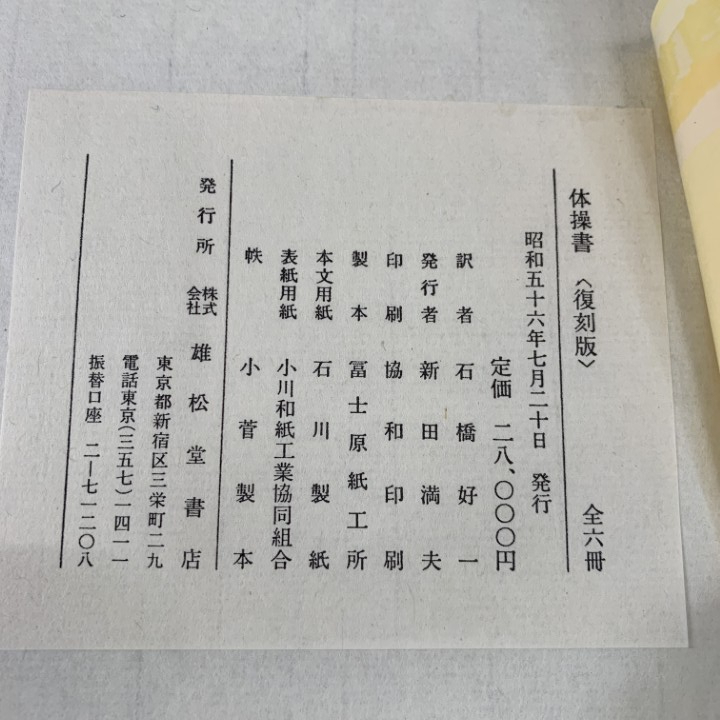 体操書 〈復刻版〉 全六冊
昭和五十六年七月二十日 発行
定価 二八、〇〇〇円
訳者 石橋好一
発行者 新田満夫
印刷 協和印刷
製本 冨士原紙工所
本文用紙 石川製紙
表紙用紙 小川和紙工業協同組合
帙 小菅製本
発行所 株式会社 雄松堂書店
東京都新宿区三栄町二九
電話東京(三五七)一四一一
振替口座 二―七一二〇八